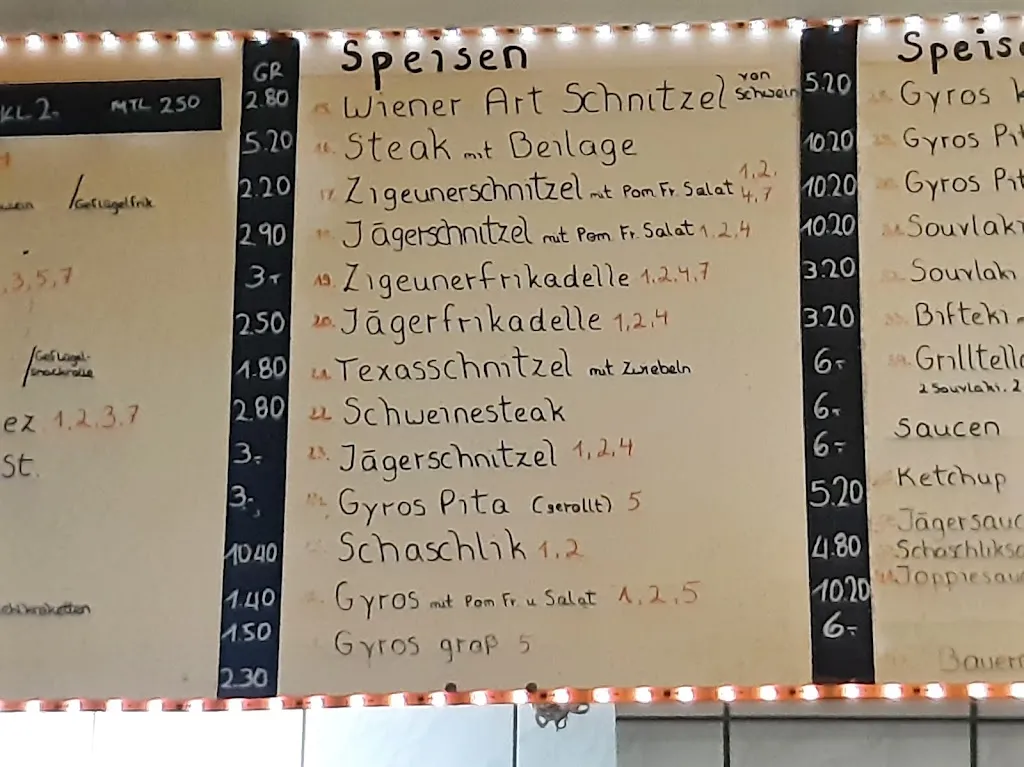 KL 2. MTL 250
/Geflügelfrik
, 3, 5, 7
/Geflügel-
ez 1, 2, 3, 7
St.
GR
2.80
5.20
2.20
2.90
3.-
2.50
1.80
2.80
3.-
3.-
10.40
1.40
1.50
2.30
Speisen
Wiener Art Schnitzel von Schwein 5.20
16. Steak mit Beilage 10.20
17. Zigeunerschnitzel mit Pom Fr. Salat 1, 2, 4, 7 10.20
Jägerschnitzel mit Pom Fr. Salat 1, 2, 4 10.20
19. Zigeunerfrikadelle 1, 2, 4, 7 3.20
20. Jägerfrikadelle 1, 2, 4 3.20
21. Texasschnitzel mit Zwiebeln 6.-
22. Schweinesteak 6.-
23. Jägerschnitzel 1, 2, 4 6.-
Gyros Pita (gerollt) 5 5.20
Schaschlik 1, 2 4.80
Gyros mit Pom Fr u Salat 1, 2, 5 10.20
Gyros groß 5 6.-
Speise
Gyros
Gyros Pit
Gyros Pit
Souvlaki
Souvlaki
Bifteki
Grilltelle
2 Souvlaki, 2
Saucen
Ketchup
Jägersauc
Schaschliksa
Joppiesau
Bauern